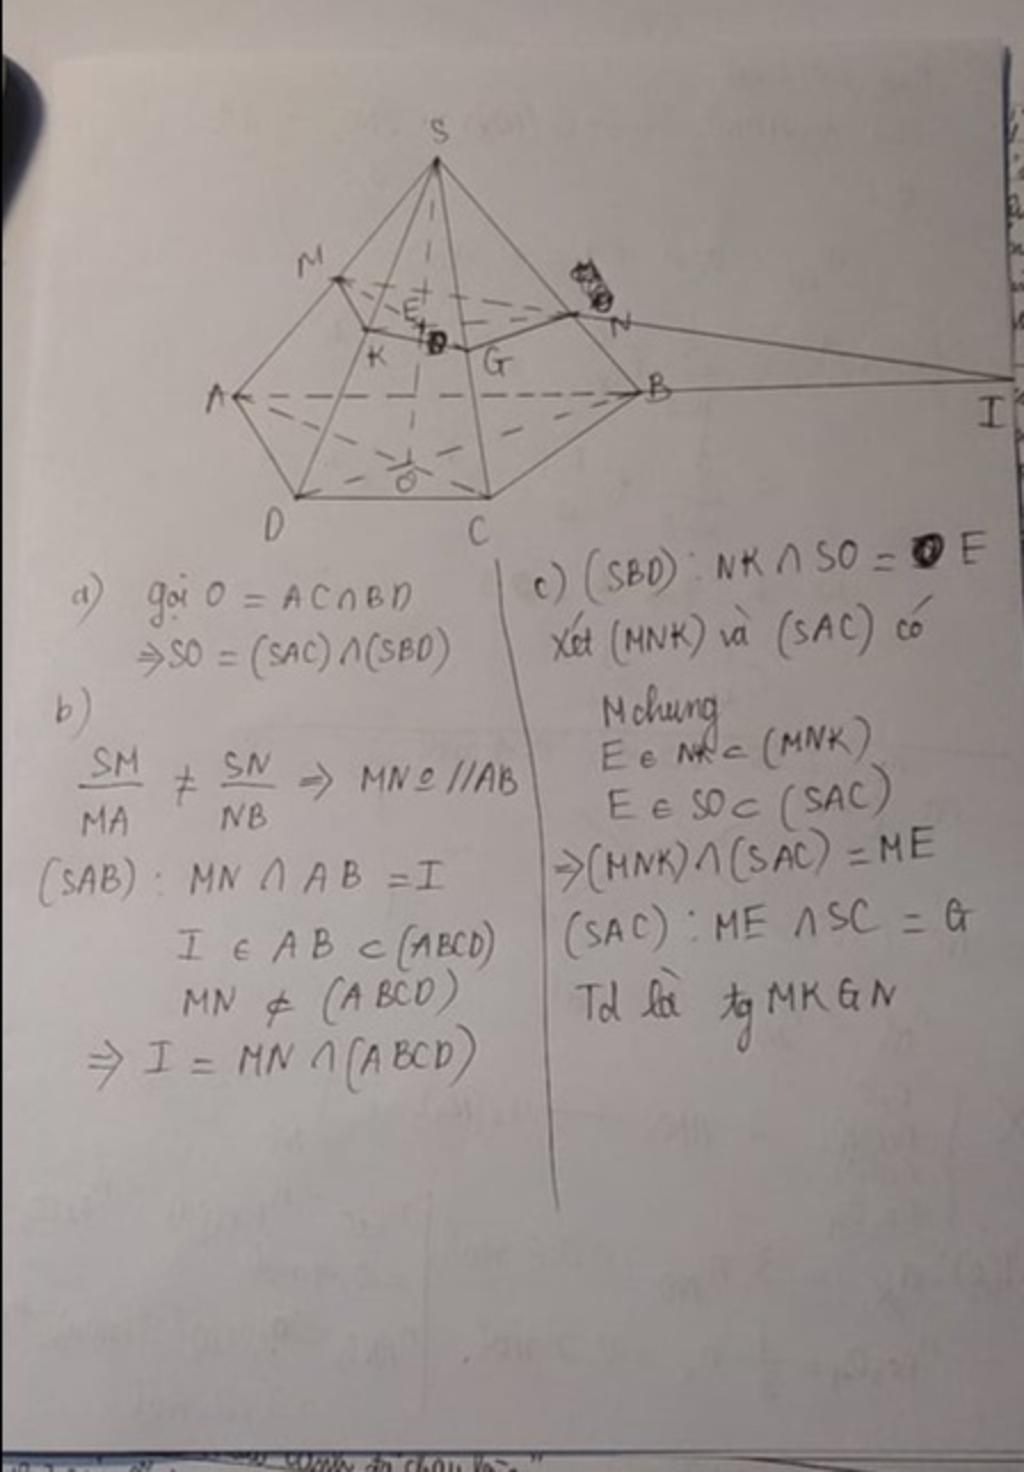 S
M
E
K
G
N
A
B
I
O
D
C
a) gọi O = AC ∩ BD
⇒ SO = (SAC) ∩ (SBD)
b)
SM/MA ≠ SN/NB ⇒ MN //AB
(SAB) : MN ∩ AB = I
I ∈ AB ⊂ (ABCD)
MN ⊄ (ABCD)
⇒ I = MN ∩ (ABCD)
c) (SBD) : NK ∩ SO = E
Xét (MNK) và (SAC) có
M chung
E ∈ NK ⊂ (MNK)
E ∈ SO ⊂ (SAC)
⇒ (MNK) ∩ (SAC) = ME
(SAC) : ME ∩ SC = G
Td là tg MKGN